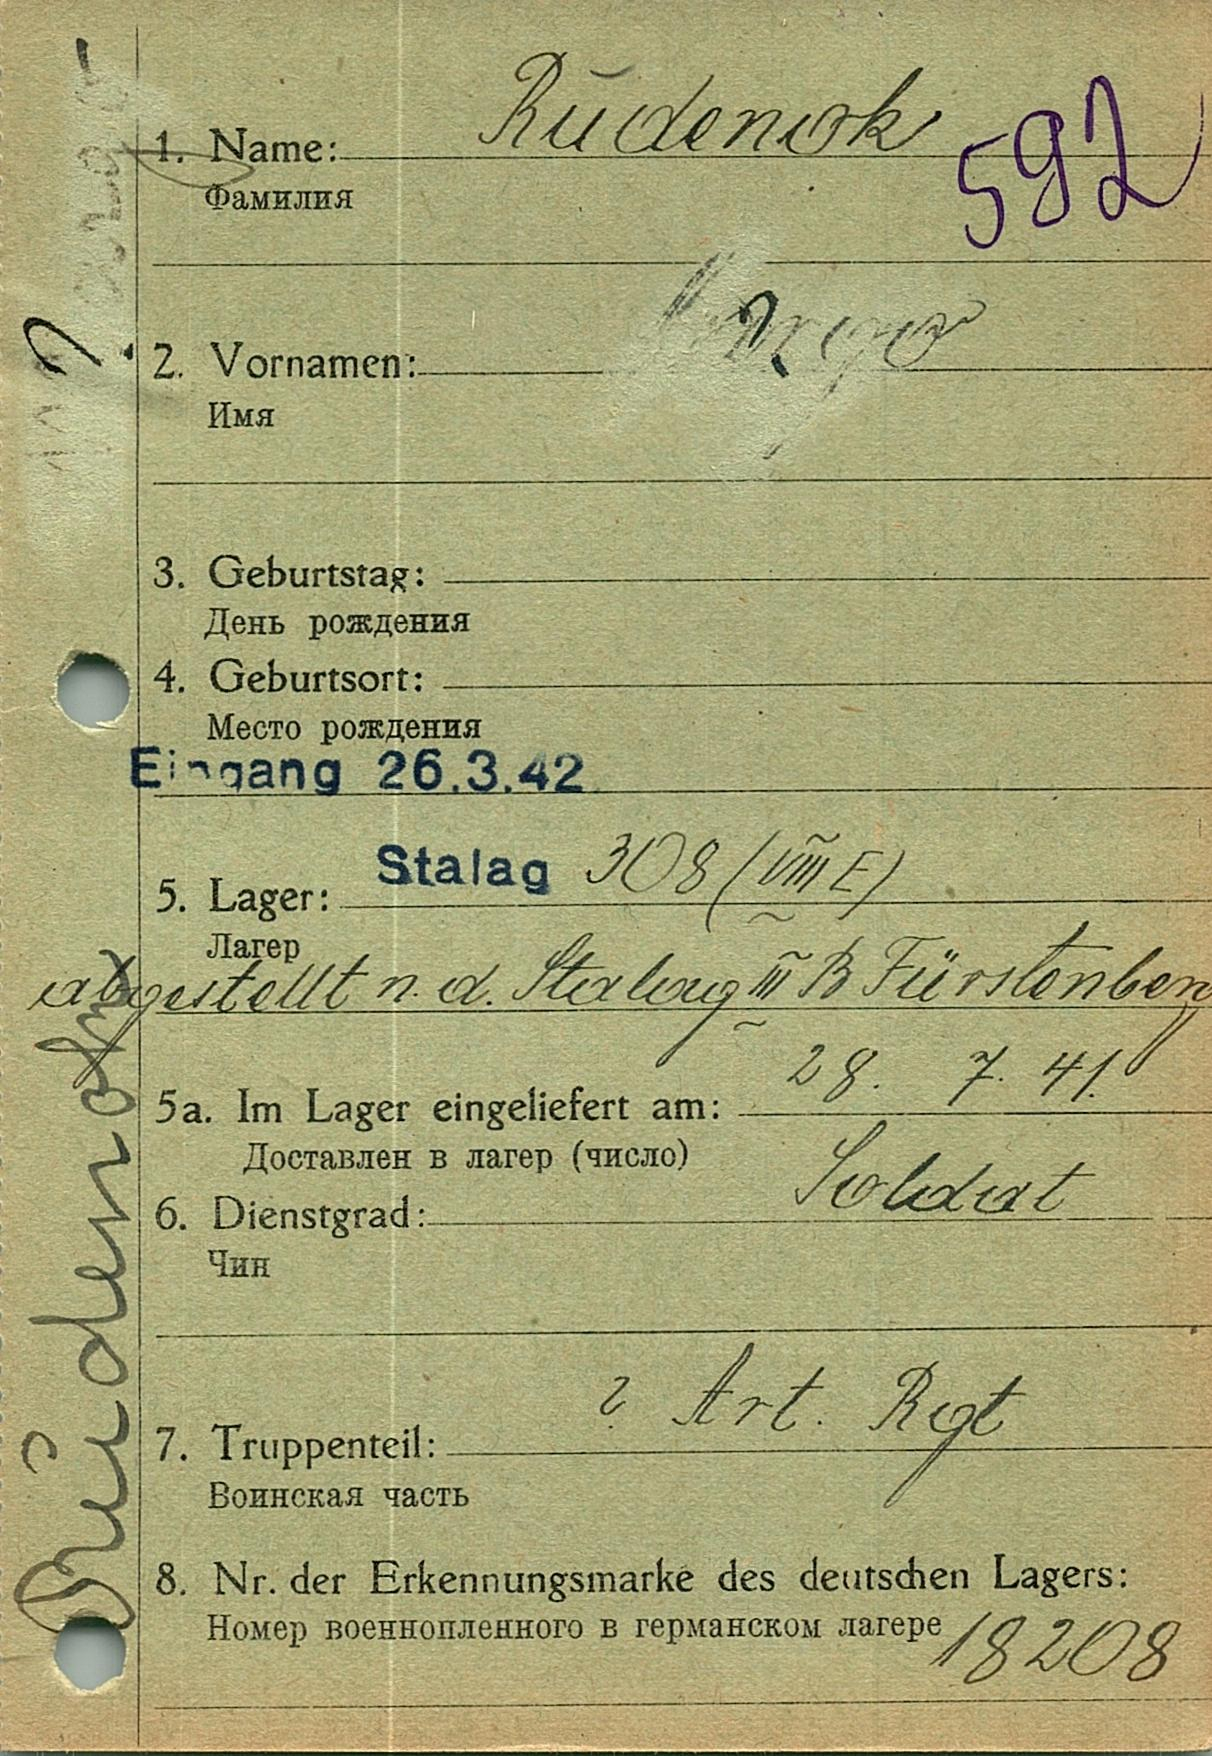 Rudenok
1. Name:
592
Фамилия
?
2. Vornamen:
?
Имя
3. Geburtstag:
День рождения
4. Geburtsort:
Место рождения
Eingang 26.3.42
Stalag 308 (VIII E)
5. Lager:
Лагер
abgestellt n. d. Stalag III B Fürstenberg
28. 7. 41.
5a. Im Lager eingeliefert am:
Доставлен в лагер (число)
Soldat
6. Dienstgrad:
Чин
? Art. Rgt
7. Truppenteil:
Воинская часть
8. Nr. der Erkennungsmarke des deutschen Lagers:
Номер военнопленного в германском лагере 18208
Rudenok